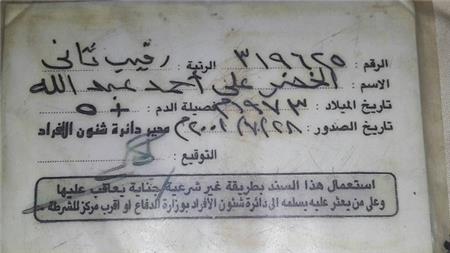 الرقم : ٣١٩٦٢٥ الرتبة : رقيب ثاني
الاسم : الخضر علي أحمد عبد الله
تاريخ الميلاد : ١٩٧٣م فصيلة الدم : + o
تاريخ الصدور : ٢٠٠١/٧/٢٨م مدير دائرة شئون الأفراد
التوقيع :
استعمال هذا السند بطريقة غير شرعية جناية يعاقب عليها
وعلى من يعثر عليه يسلمه الى دائرة شئون الأفراد بوزارة الدفاع او اقرب مركز للشرطة .